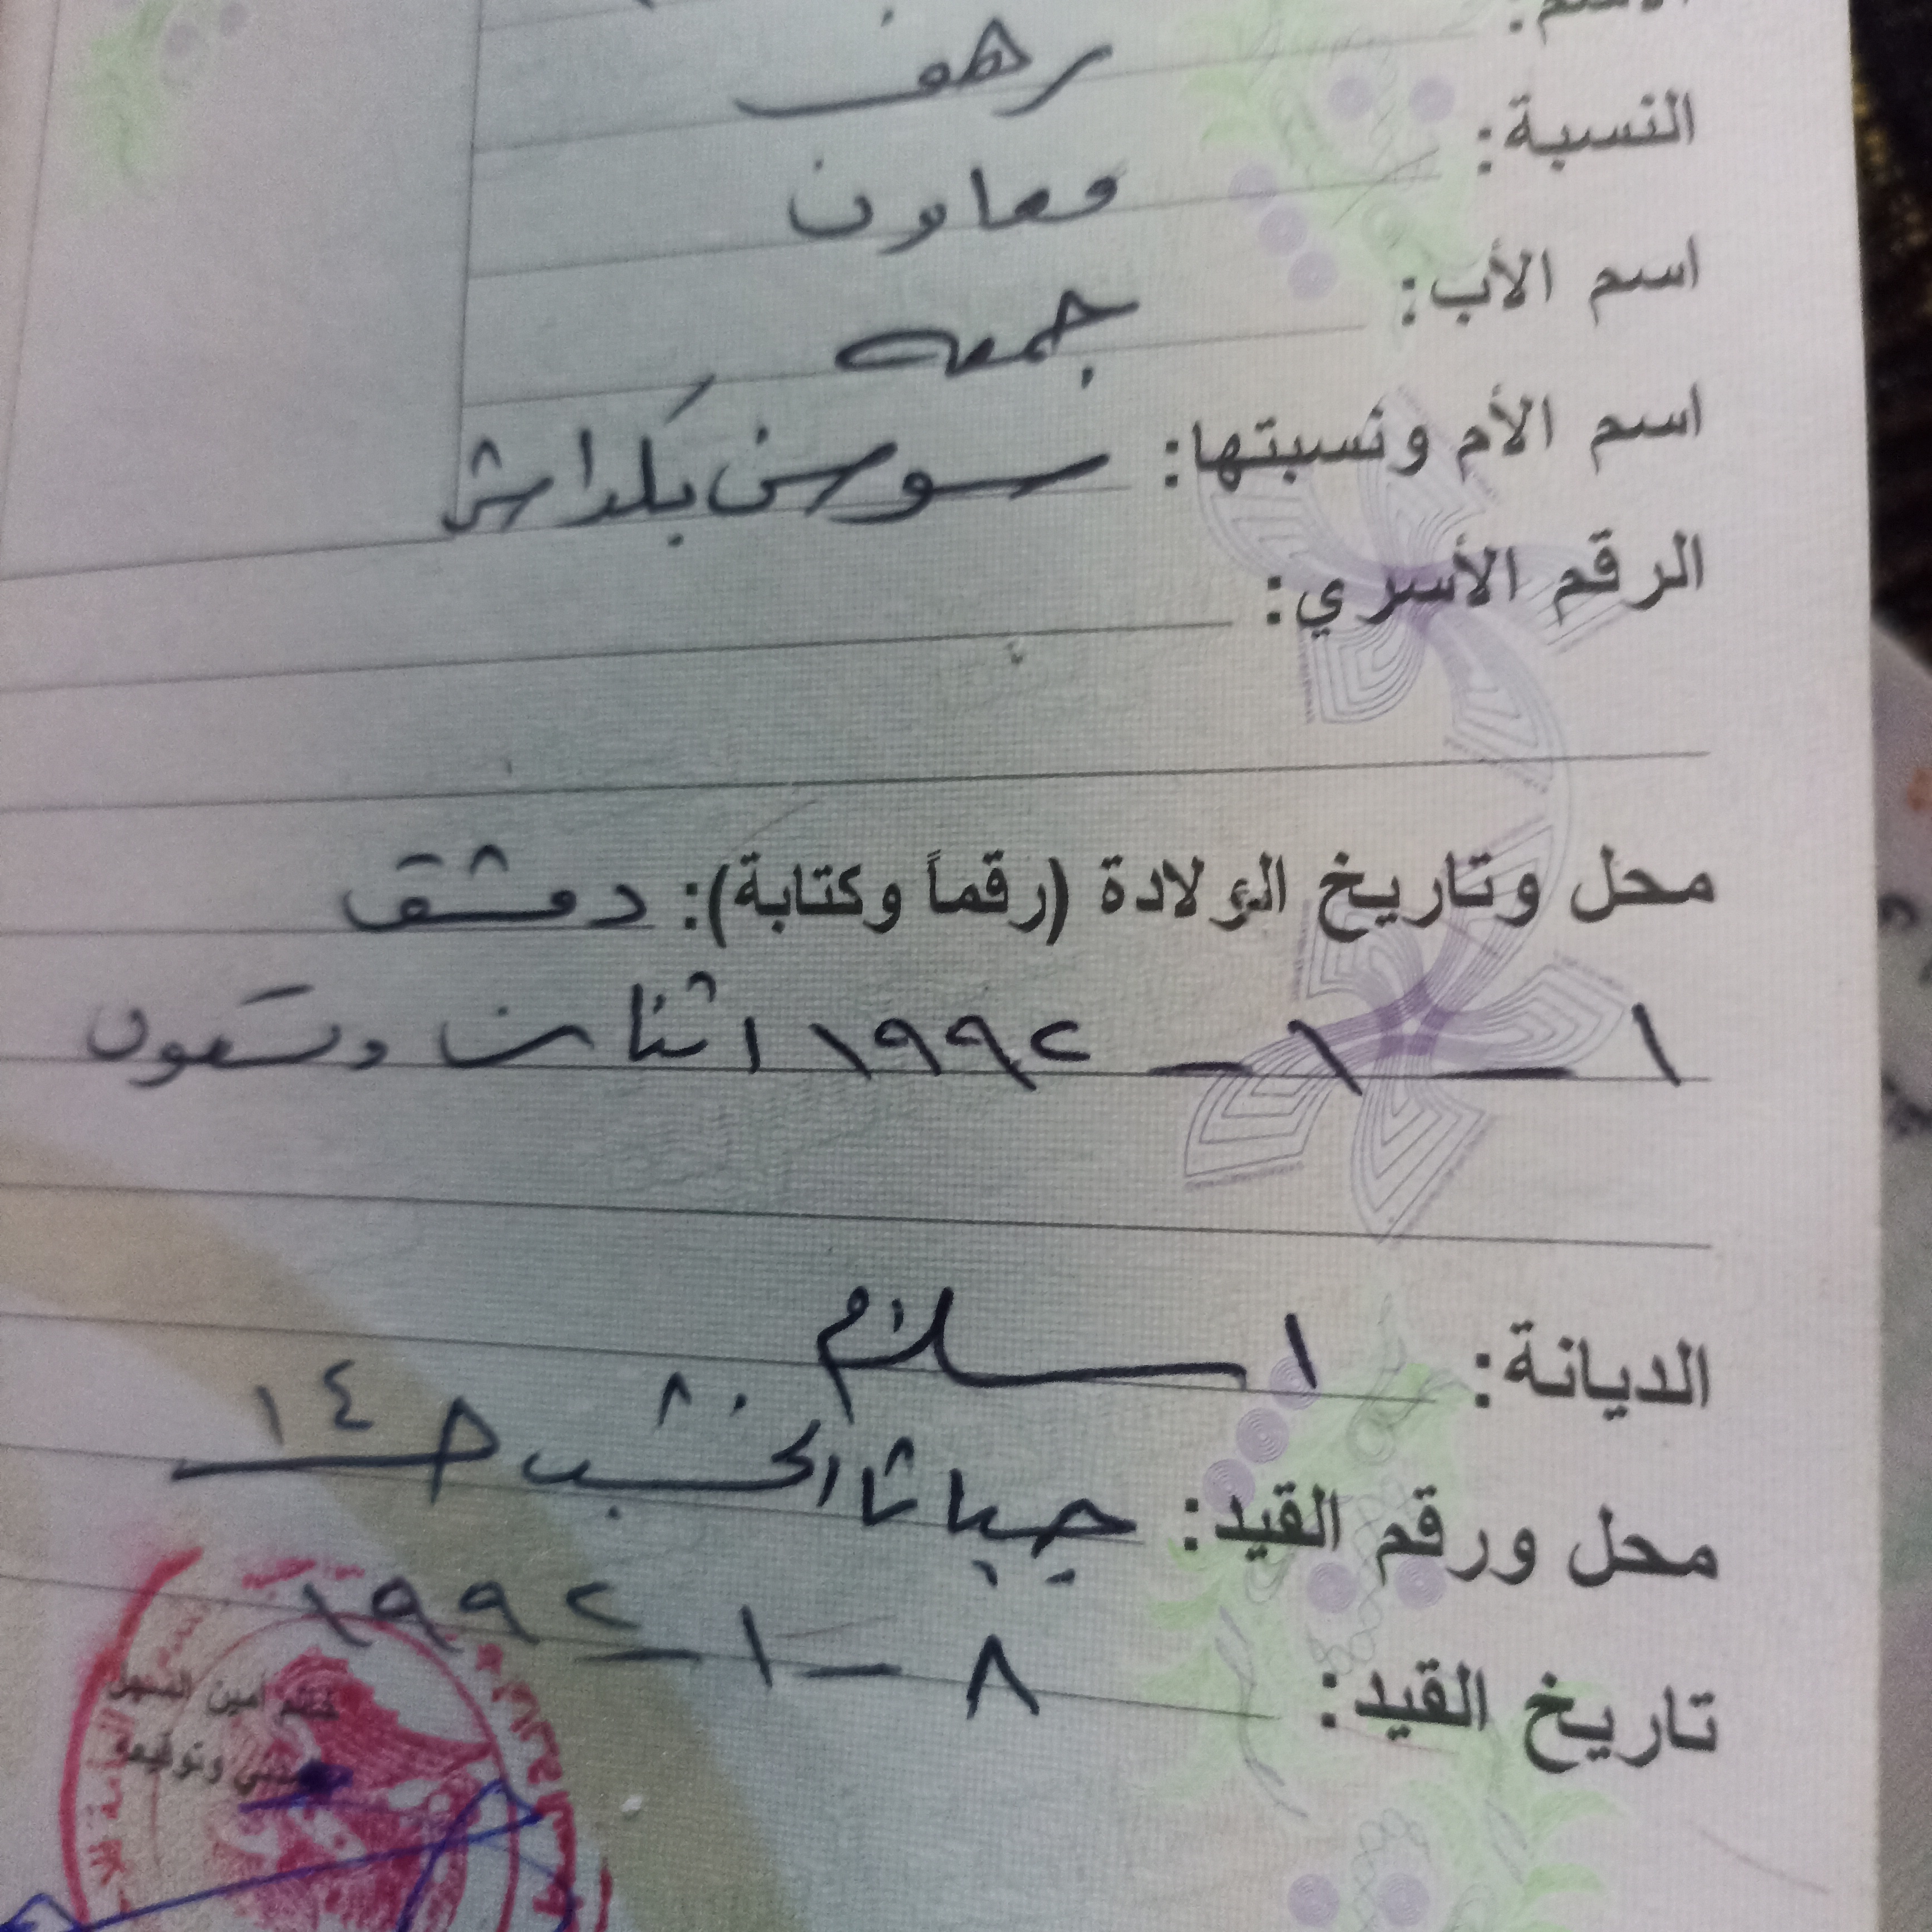 الاسم: رهف
النسبة: معاون
اسم الأب: جمعه
اسم الأم ونسبتها: سوسن بكداش
الرقم الأسري:
محل وتاريخ الولادة (رقماً وكتابة): دمشق
١ - ١ - ١٩٩٢ اثنان وتسعون
الديانة: اسلام
محل ورقم القيد: جباثا الخشب خـ ١٤
تاريخ القيد: ٨ - ١ - ١٩٩٢
خاتم أمين السجل
المدني وتوقيعه